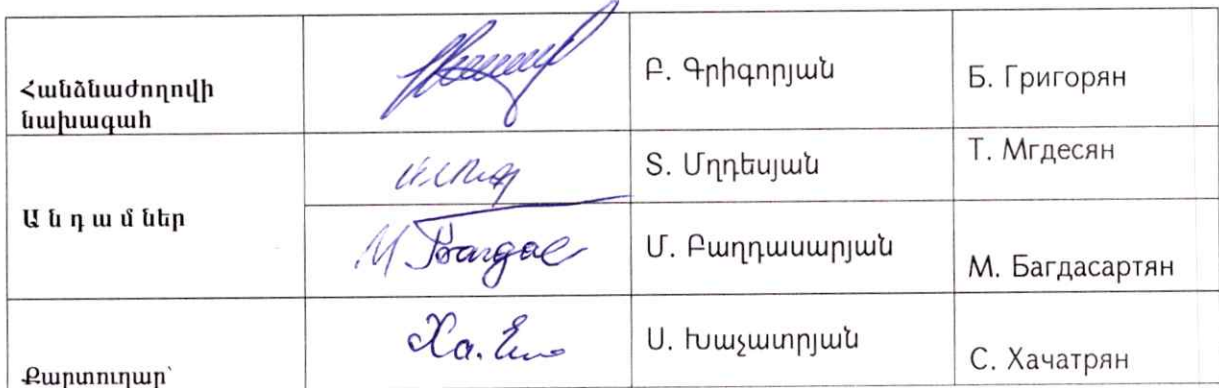 Հանձնաժողովի
նախագահ
Բ. Գրիգորյան
Б. Григорян
Անդամներ
Տ. Մղդեսյան
Т. Мгдесян
Մ. Բաղդասարյան
М. Багдасартян
Քարտուղար՝
Ս. Խաչատրյան
С. Хачатрян